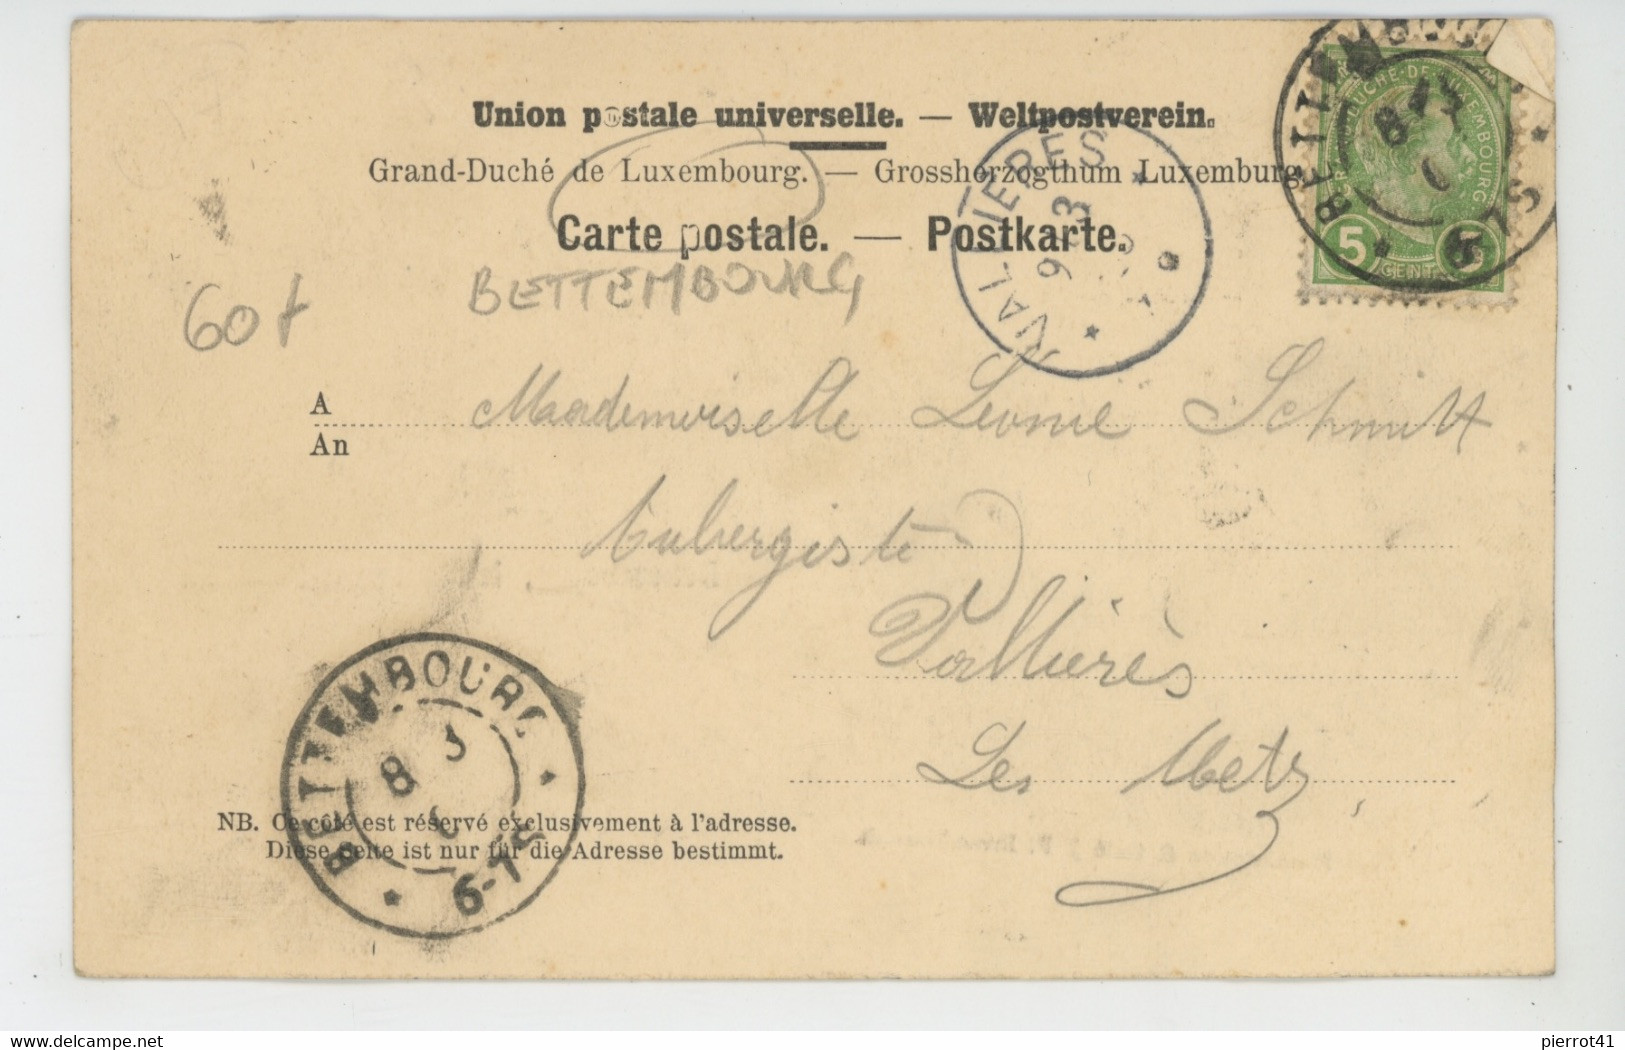 Union postale universelle. — Weltpostverein.
Grand-Duché de Luxembourg. — Grossherzogthum Luxemburg.
Carte postale. — Postkarte.
BETTEMBOURG
60f
VALLIERES
9 3
GR. DUCHÉ-DE-LUXEMBOURG
5 CENT 5
8
A Mademoiselle Leonie Schmitt
An
Aubergiste
Vallières
Les Metz
BETTEMBOURG
8 3
6-7S
NB. Ce côté est réservé exclusivement à l'adresse.
Diese Seite ist nur für die Adresse bestimmt.
delcampe.net
pierrot41